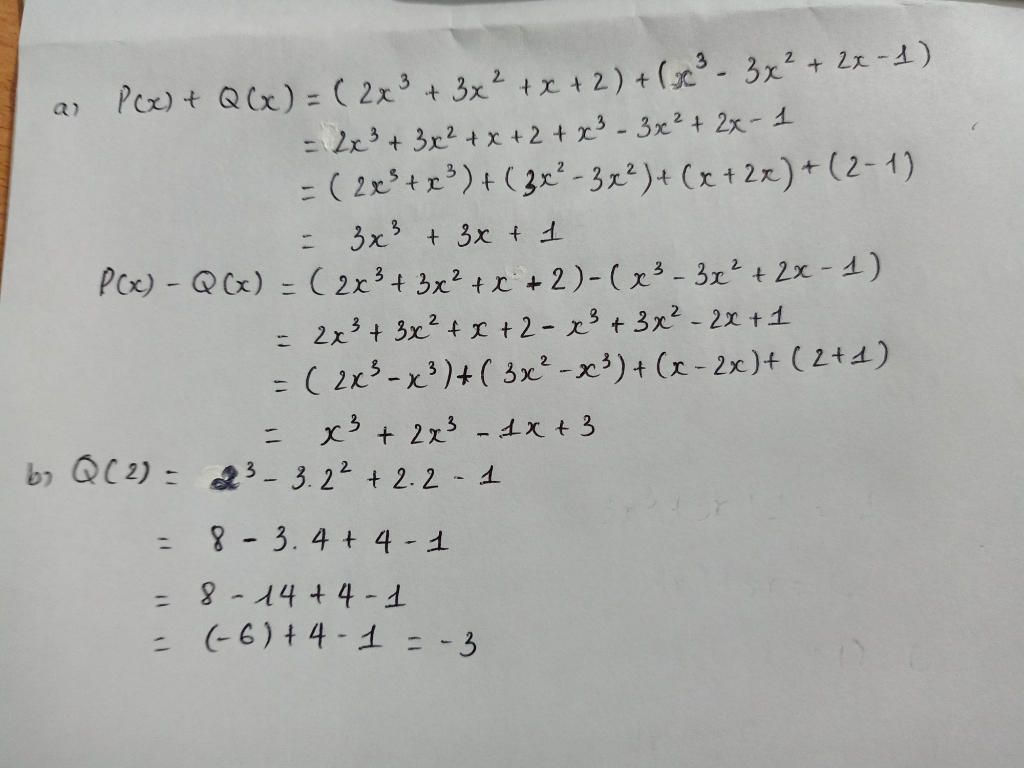 a) P(x) + Q(x) = ( 2x³ + 3x² + x + 2 ) + ( x³ - 3x² + 2x - 1 )
= 2x³ + 3x² + x + 2 + x³ - 3x² + 2x - 1
= ( 2x³ + x³ ) + ( 3x² - 3x² ) + ( x + 2x ) + ( 2 - 1 )
= 3x³ + 3x + 1
P(x) - Q(x) = ( 2x³ + 3x² + x + 2 ) - ( x³ - 3x² + 2x - 1 )
= 2x³ + 3x² + x + 2 - x³ + 3x² - 2x + 1
= ( 2x³ - x³ ) + ( 3x² - x³ ) + ( x - 2x ) + ( 2 + 1 )
= x³ + 2x³ - 1x + 3
b) Q(2) = 2³ - 3.2² + 2.2 - 1
= 8 - 3.4 + 4 - 1
= 8 - 14 + 4 - 1
= (-6) + 4 - 1 = -3